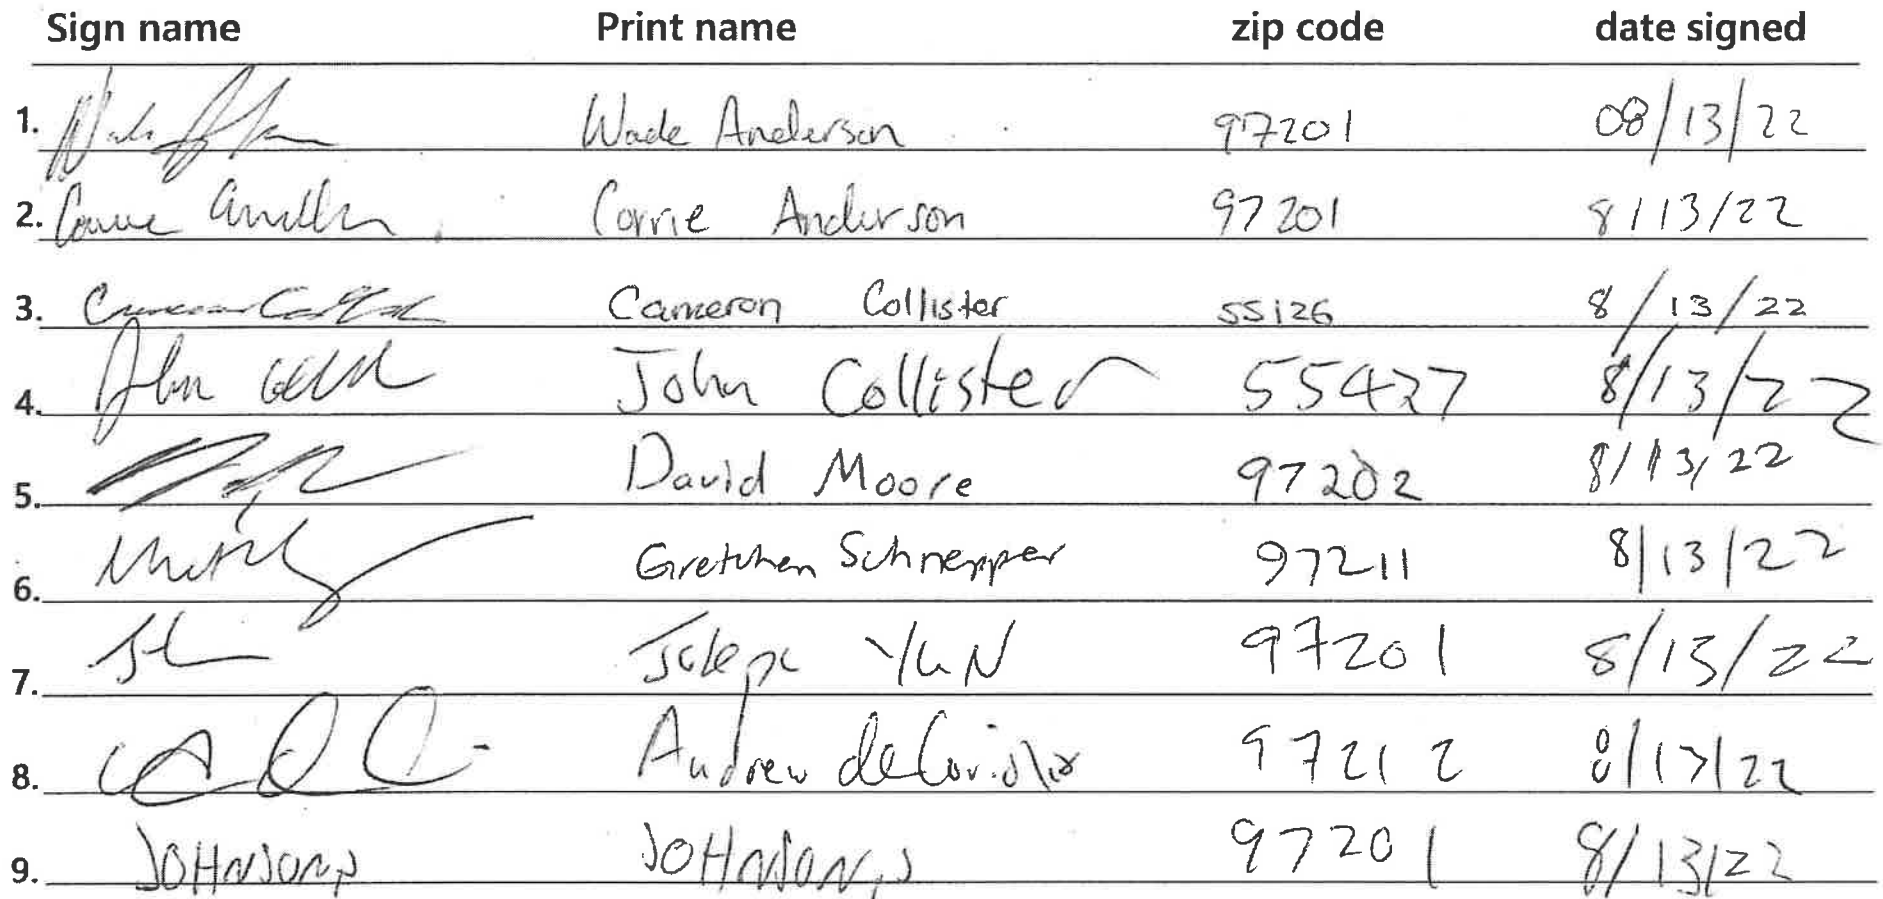 Sign name Print name zip code date signed
1. Wade Anderson 97201 08/13/22
2. Corrie Anderson 97201 8/13/22
3. Cameron Collister 55126 8/13/22
4. John Collister 55427 8/13/22
5. David Moore 97202 8/13/22
6. Gretchen Schnepper 97211 8/13/22
7. YuN 97201 8/13/22
8. Andrew 97212 8/13/22
9. JOHNSON, JOHNSON, 97201 8/13/22